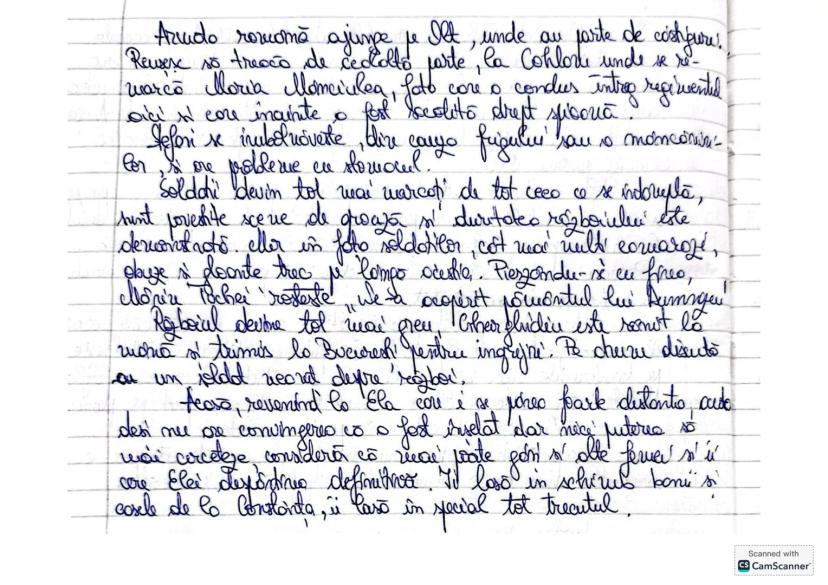 Armata română ajunge pe Olt, unde au parte de câștiguri.
Reușesc să treacă de cealaltă parte, la Cohlanu unde se re-
marcă Maria Mănciulea, fata care a condus întreg regimentul
aici și care înainte a fost socolită drept spioană.
Ștefan se îmbolnăvește, din cauza frigului sau a mâncăruri-
lor, și are probleme cu stomacul.
Soldații devin tot mai marcați de tot ceea ce se întâmplă,
sunt povestite scene de groază și duritatea războiului este
demonstrată. Mor în fața soldaților, cât mai mulți camarazi,
obuze și gloanțe trec pe lângă aceștia. Pierzându-și cu firea,
Marin Tuchei rostește „Ne-a acoperit pământul lui Dumnezeu"
Războiul devine tot mai greu, Gheorghidiu este rănit la
mână și trimis la București pentru îngrijiri. Pe drum discută
cu un soldat neamț despre război.
Acasă, revenind la Ela care i se părea foarte distanta,
deși nu are convingerea că a fost înșelat dar nici puterea să
mai cerceteze consideră că mai poate găsi și alte femei și îi
cere Elei despărțirea definitivă. Îi lasă în schimb banii și
casele de la Constanța, îi lasă în special tot trecutul.
Scanned with
CS CamScanner